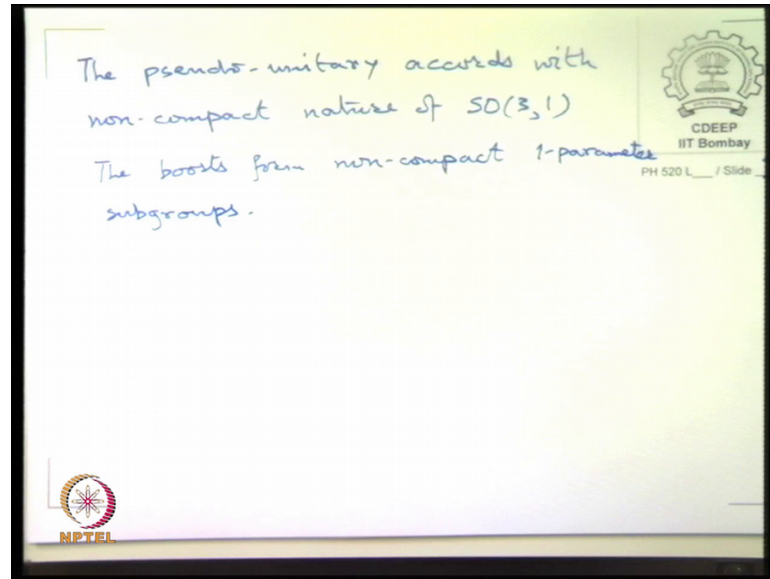 The pseudo-unitary accords with
non-compact nature of SO(3,1)
The boosts form non-compact 1-parameter
subgroups.
CDEEP
IIT Bombay
PH 520 L___ / Slide _
NPTEL